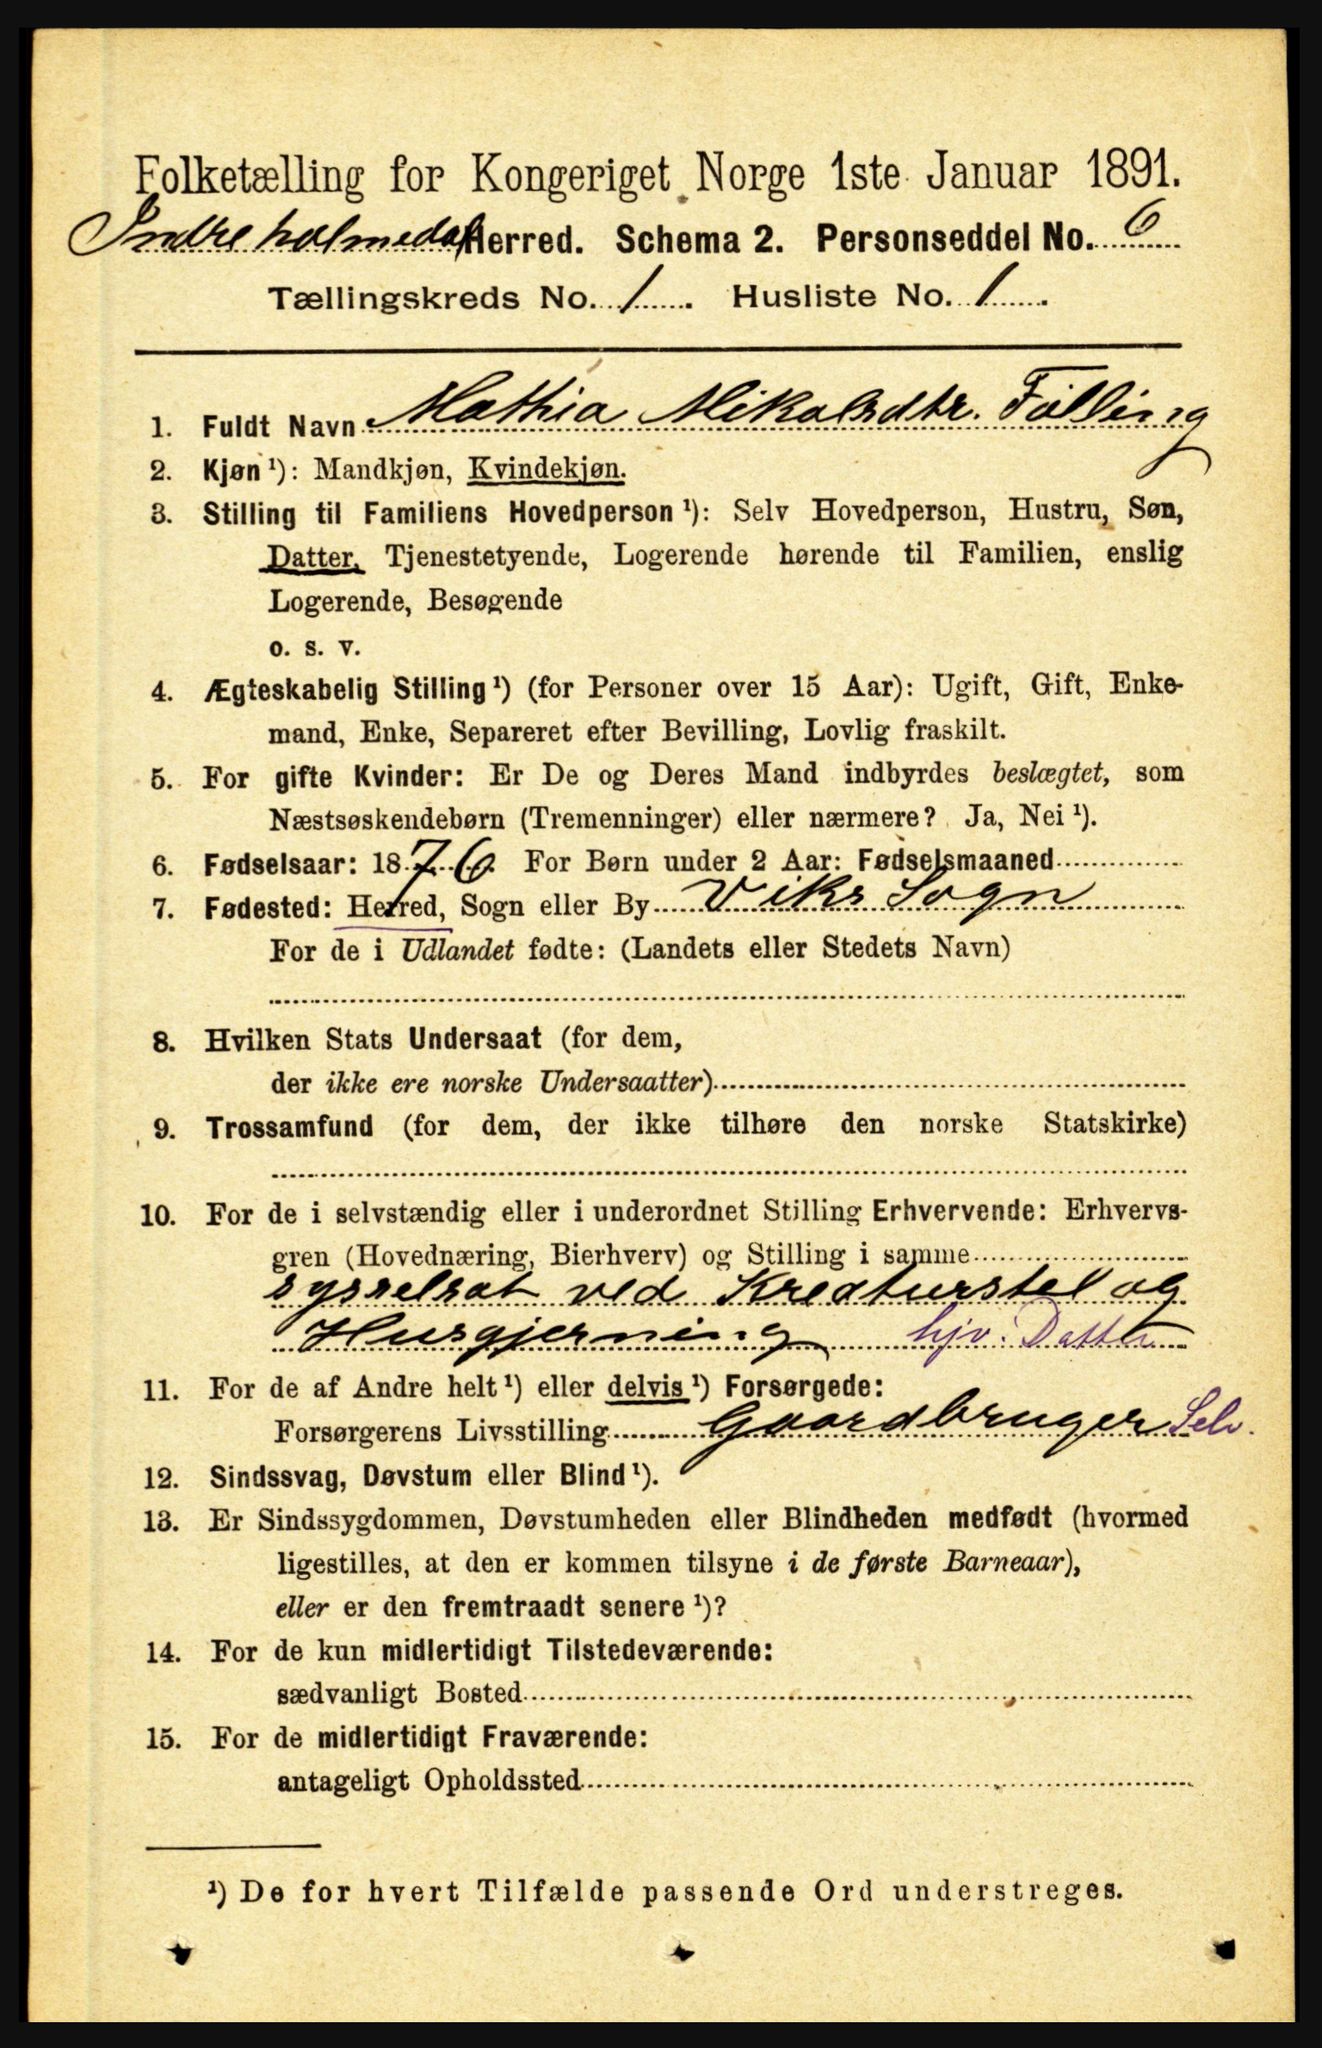 Folketælling for Kongeriget Norge 1ste Januar 1891.
Indre holmedal Herred. Schema 2. Personseddel No. 6
Tællingskreds No. 1. Husliste No. 1.
1. Fuldt Navn Mathia Mikalsdtr. Fölling
2. Kjøn ¹): Mandkjøn, Kvindekjøn.
3. Stilling til Familiens Hovedperson ¹): Selv Hovedperson, Hustru, Søn,
Datter, Tjenestetyende, Logerende hørende til Familien, enslig
Logerende, Besøgende
o. s. v.
4. Ægteskabelig Stilling ¹) (for Personer over 15 Aar): Ugift, Gift, Enke-
mand, Enke, Separeret efter Bevilling, Lovlig fraskilt.
5. For gifte Kvinder: Er De og Deres Mand indbyrdes beslægtet, som
Næstsøskendebørn (Tremenninger) eller nærmere? Ja, Nei ¹).
6. Fødselsaar: 1876. For Børn under 2 Aar: Fødselsmaaned
7. Fødested: Herred, Sogn eller By Viks Sogn
For de i Udlandet fødte: (Landets eller Stedets Navn)
8. Hvilken Stats Undersaat (for dem,
der ikke ere norske Undersaatter)
9. Trossamfund (for dem, der ikke tilhøre den norske Statskirke)
10. For de i selvstændig eller i underordnet Stilling Erhvervende: Erhvervs-
gren (Hovednæring, Bierhverv) og Stilling i samme
sysselsat ved Kreaturstel og
Husgjerning hjv. Datter
11. For de af Andre helt ¹) eller delvis ¹) Forsørgede:
Forsørgerens Livsstilling Gaardbruger Selv.
12. Sindssvag, Døvstum eller Blind ¹).
13. Er Sindssygdommen, Døvstumheden eller Blindheden medfødt (hvormed
ligestilles, at den er kommen tilsyne i de første Barneaar),
eller er den fremtraadt senere ¹)?
14. For de kun midlertidigt Tilstedeværende:
sædvanligt Bosted
15. For de midlertidigt Fraværende:
antageligt Opholdssted
¹) De for hvert Tilfælde passende Ord understreges.